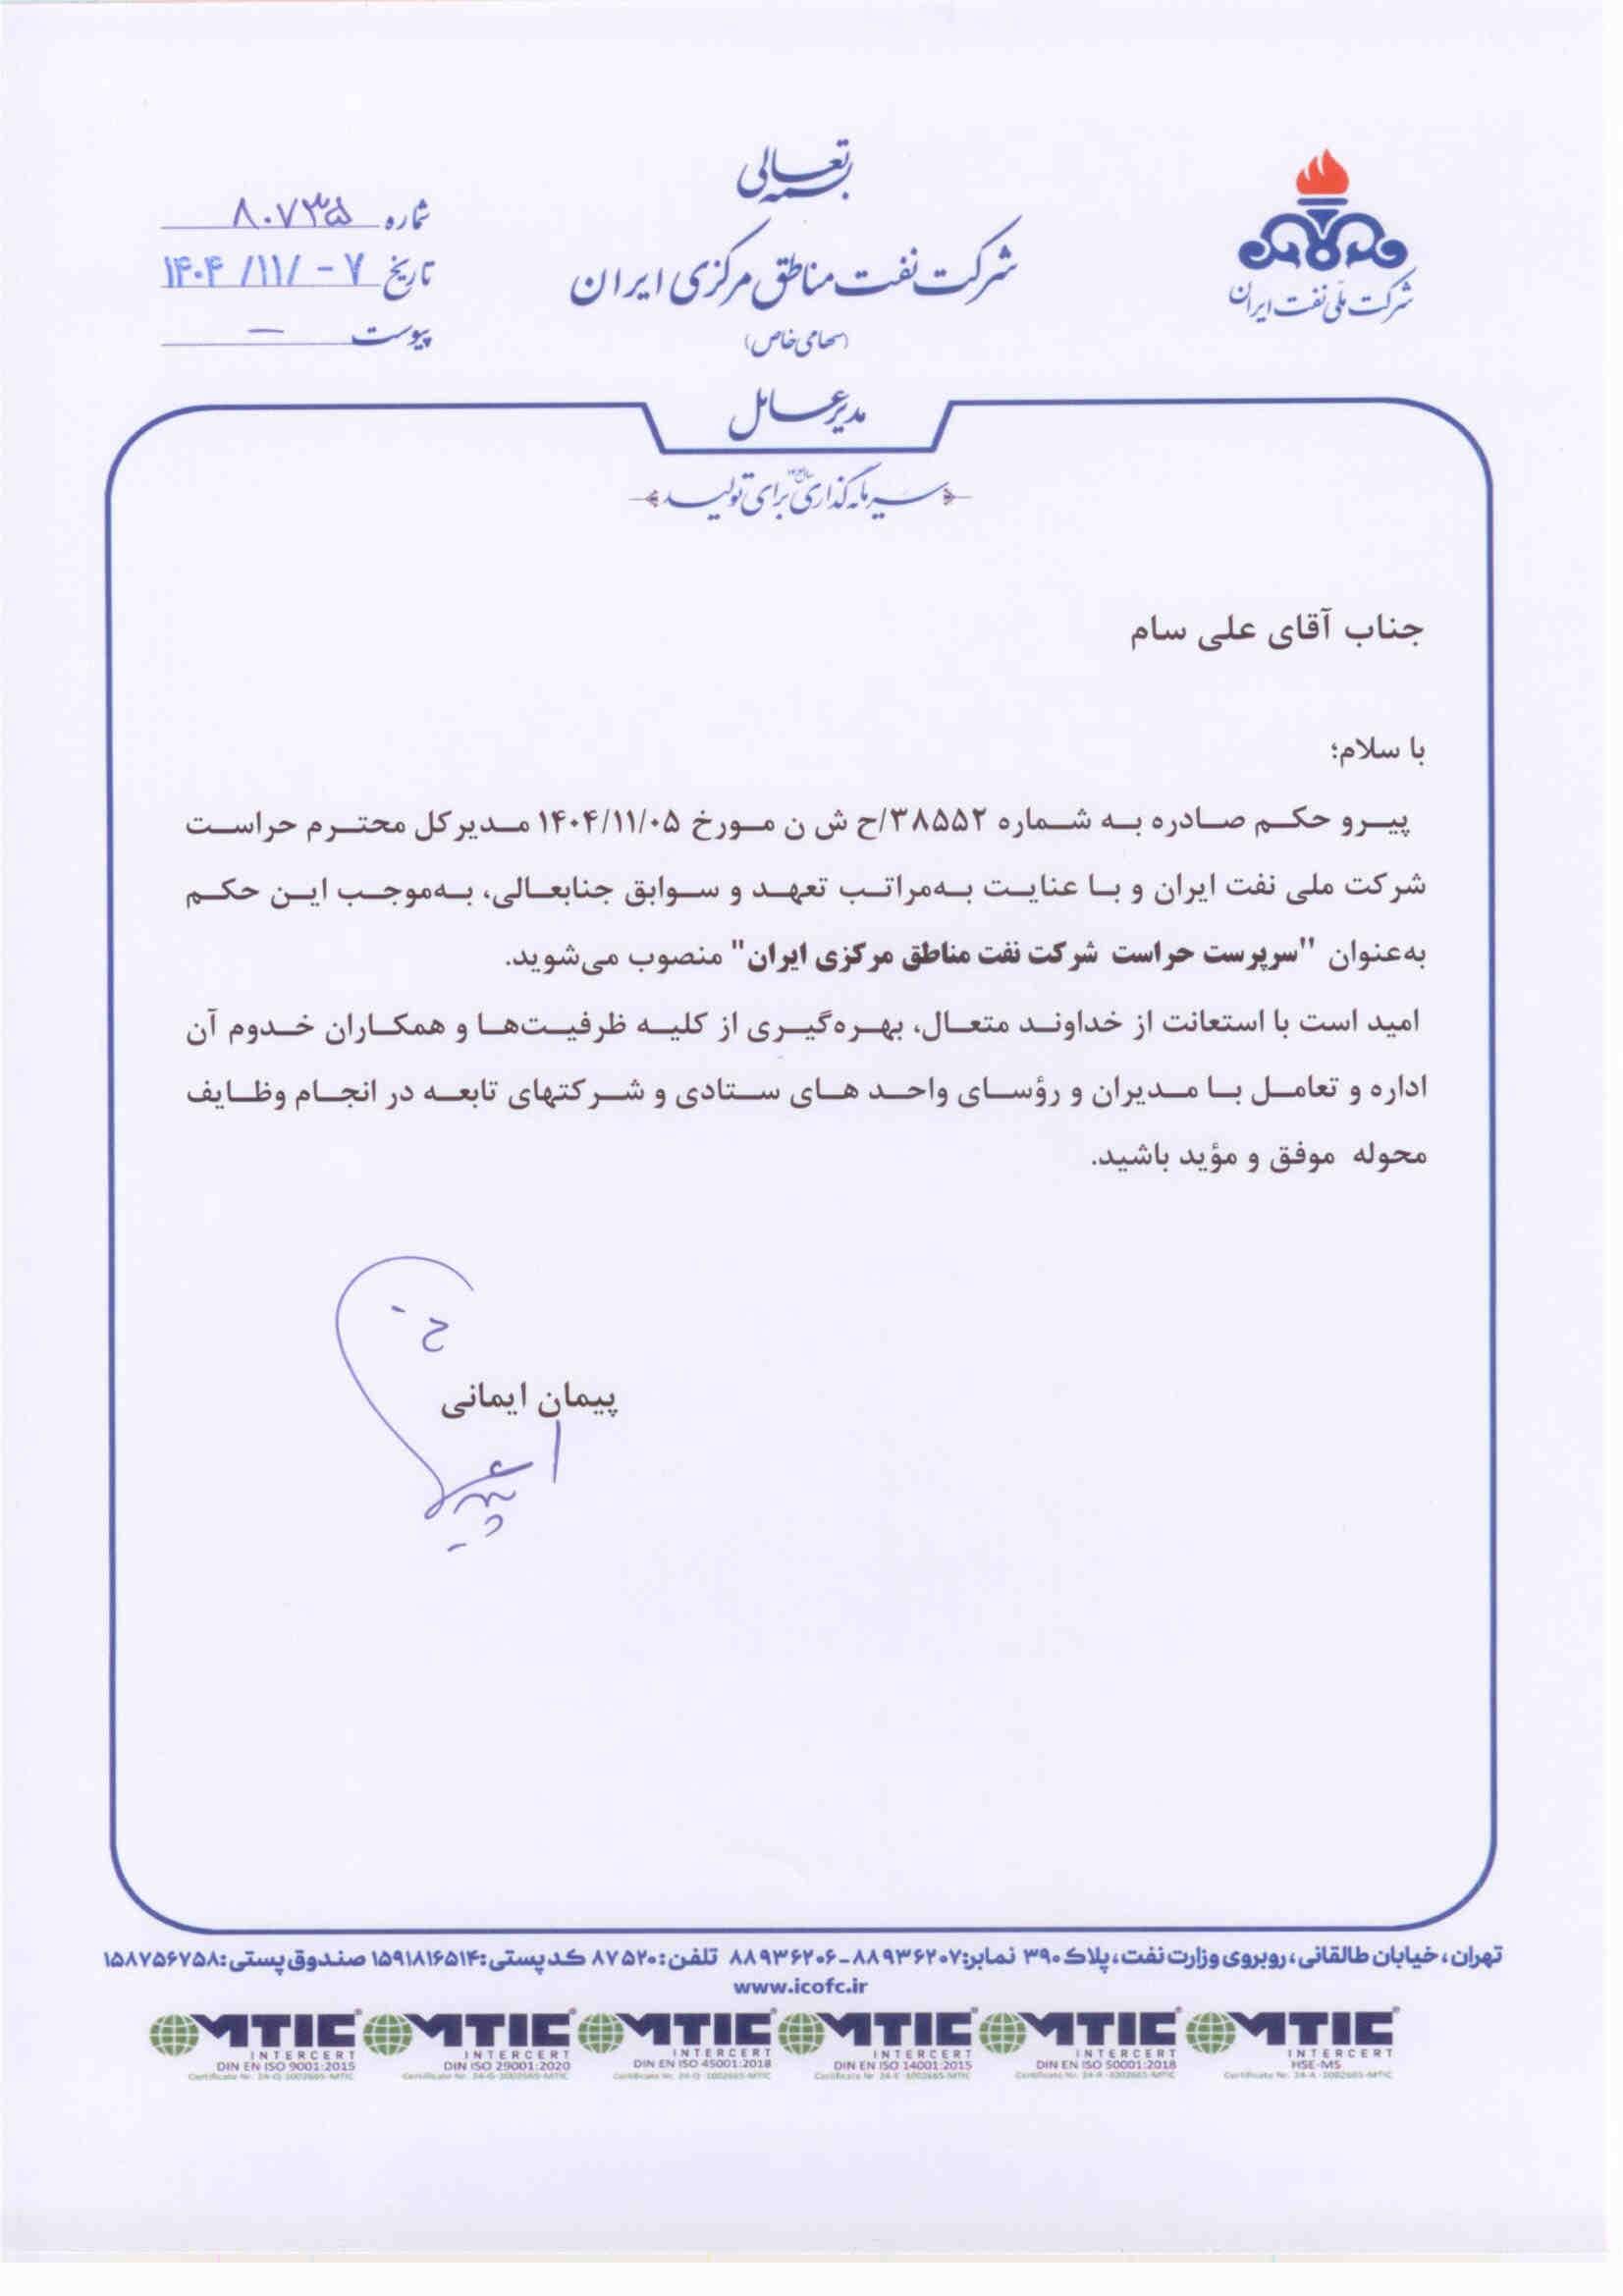 بسمه تعالی
شرکت نفت مناطق مرکزی ایران
(سهامی خاص)
مدیرعامل
شرکت ملی نفت ایران
شماره ۸۰۷۳۵
تاریخ ۷ - /۱۱/ ۱۴۰۴
پیوست —
سرمایه گذاری برای تولید
جناب آقای علی سام
با سلام؛
پیرو حکم صادره به شماره ۳۸۵۵۲/ح ش ن مورخ ۱۴۰۴/۱۱/۰۵ مدیرکل محترم حراست
شرکت ملی نفت ایران و با عنایت به‌مراتب تعهد و سوابق جنابعالی، به‌موجب این حکم
به‌عنوان "سرپرست حراست شرکت نفت مناطق مرکزی ایران" منصوب می‌شوید.
امید است با استعانت از خداوند متعال، بهره‌گیری از کلیه ظرفیت‌ها و همکاران خدوم آن
اداره و تعامل با مدیران و رؤسای واحد های ستادی و شرکتهای تابعه در انجام وظایف
محوله موفق و مؤید باشید.
پیمان ایمانی
تهران، خیابان طالقانی، روبروی وزارت نفت، پلاک ۳۹۰ نمابر: ۸۸۹۳۶۲۰۷-۸۸۹۳۶۲۰۶ تلفن: ۸۷۵۲۰ کدپستی: ۱۵۹۱۸۱۶۵۱۴ صندوق پستی: ۱۵۸۷۵۶۷۵۸
www.icofc.ir
MTIC MTIC MTIC MTIC MTIC MTIC
INTERCERT INTERCERT INTERCERT INTERCERT INTERCERT INTERCERT
DIN EN ISO 9001:2015 DIN ISO 29001:2020 DIN EN ISO 45001:2018 DIN EN ISO 14001:2015 DIN EN ISO 50001:2018 HSE-MS